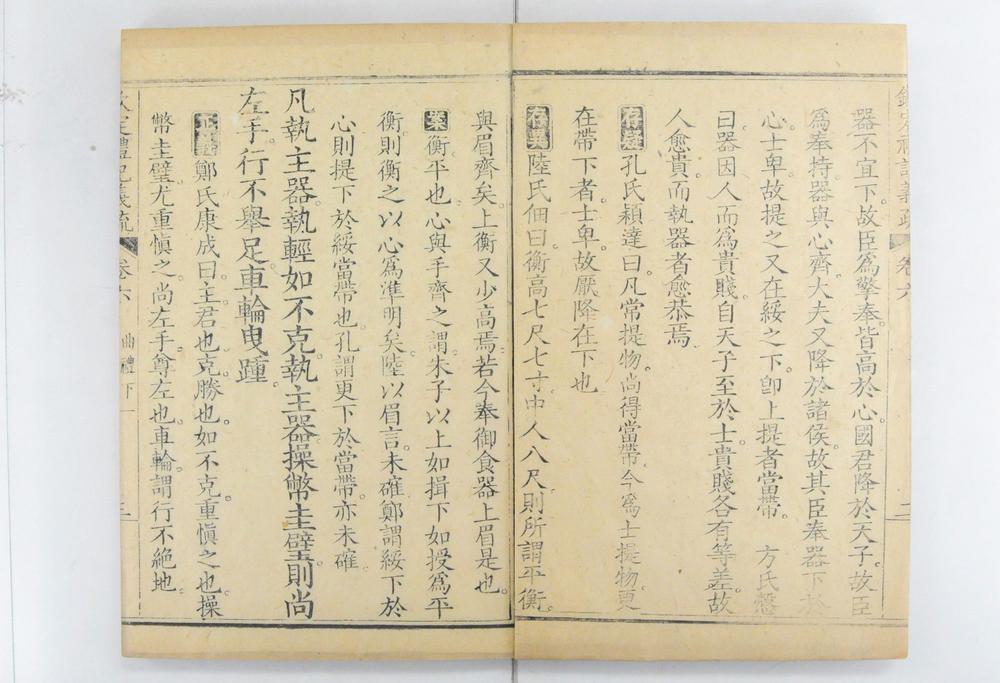 器不宜下故臣為擎奉皆高於心國君降於天子故臣
為奉持器與心齊大夫又降於諸侯故其臣奉器下於
心士卑故提之又在綏之下卽上提者當帶 方氏慤
曰器因人而為貴賤自天子至於士貴賤各有等差故
人愈貴而執器者愈恭焉
存疑孔氏穎達曰凡常提物尚得當帶今為士提物更
在帶下者士卑故厭降在下也
存異陸氏佃曰衡高七尺七寸中人八尺則所謂平衡
與眉齊矣上衡又少高焉若今奉御食器上眉是也
案衡平也心與手齊之謂朱子以上如揖下如授為平
衡則衡之以心為準明矣陸以眉言未確鄭謂綏下於
心則提下於綏當帶也孔謂更下於當帶亦未確
凡執主器執輕如不克執主器操幣圭璧則尚
左手行不舉足車輪曳踵
正義鄭氏康成曰主君也克勝也如不克重慎之也操
幣圭璧尤重慎之尚左手尊左也車輪謂行不絕地
欽定禮記義疏 卷六 曲禮下 二
欽定禮記義疏 卷六 曲禮下 三